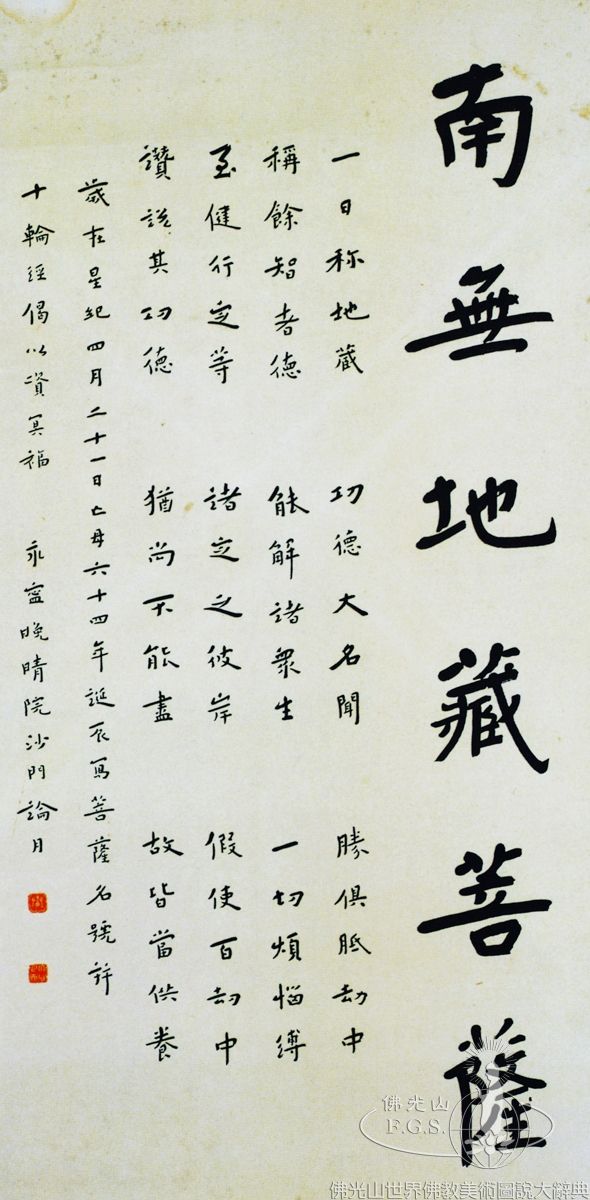 南無地藏菩薩
一日称地藏 功德大名聞 勝俱胝劫中
稱餘智者德 能解諸衆生 一切煩惱縛
至健行定等 諸定之彼岸 假使百劫中
讚說其功德 猶尚不能盡 故皆當供養
歲在星紀四月二十一日亡母六十四年誕辰寫菩薩名號并
十輪經偈以資冥福 永寧晚晴院沙門論月
佛光山
F.G.S.
佛光山世界佛教美術圖說大辭典